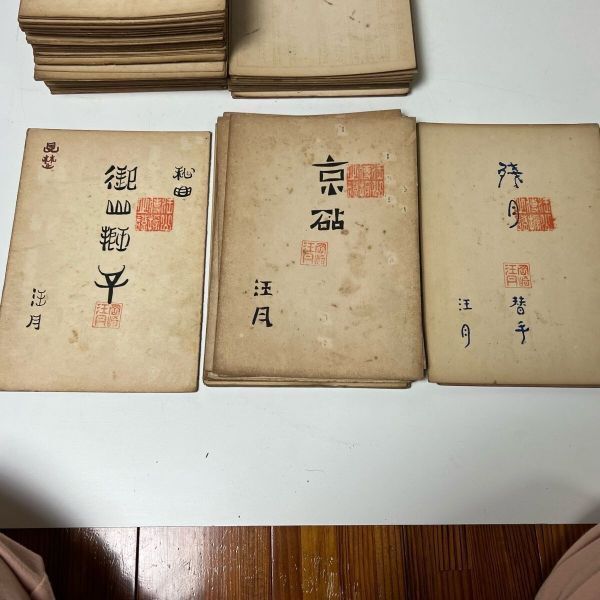 秘曲
御山獅子
汪月
京砧
汪月
残月
替手
汪月